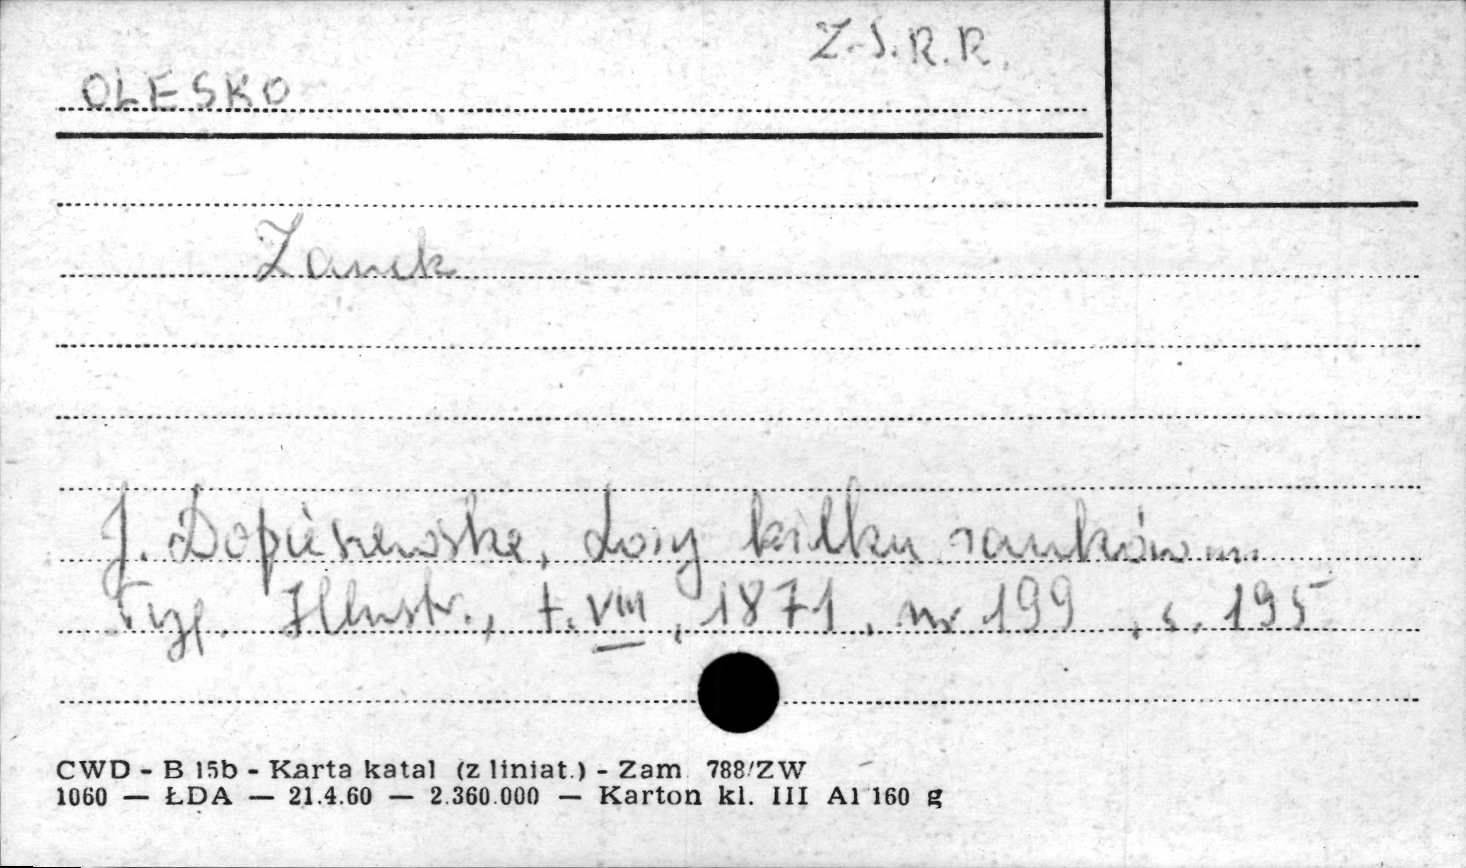 Z.S.R.R.
OLESKO
Zamek
J. Dopiszewska, Losy kilku zamków...
Tyg. Illustr., t. VIII, 1871, nr 199, s. 195
CWD - B 15b - Karta katal (z liniat.) - Zam 788/ZW
1060 — ŁDA — 21.4.60 — 2.360.000 — Karton kl. III A1 160 g